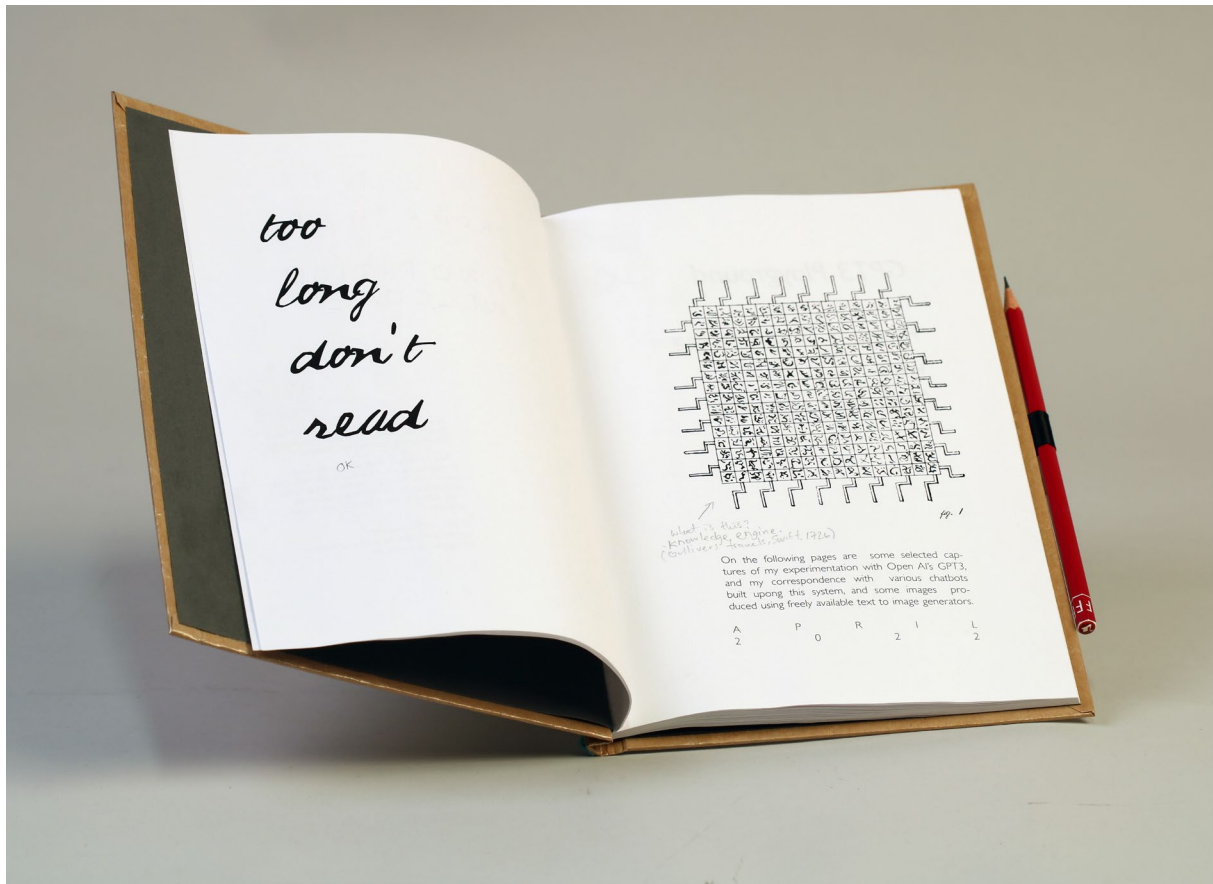 too
long
don't
read
OK
fig. 1
what is this?
- knowledge engine -
(Gullivers travels, Swift, 1726)
On the following pages are some selected cap-
tures of my experimentation with Open AI's GPT3,
and my correspondence with various chatbots
built upong this system, and some images pro-
duced using freely available text to image generators.
A P R I L
2 0 2 2